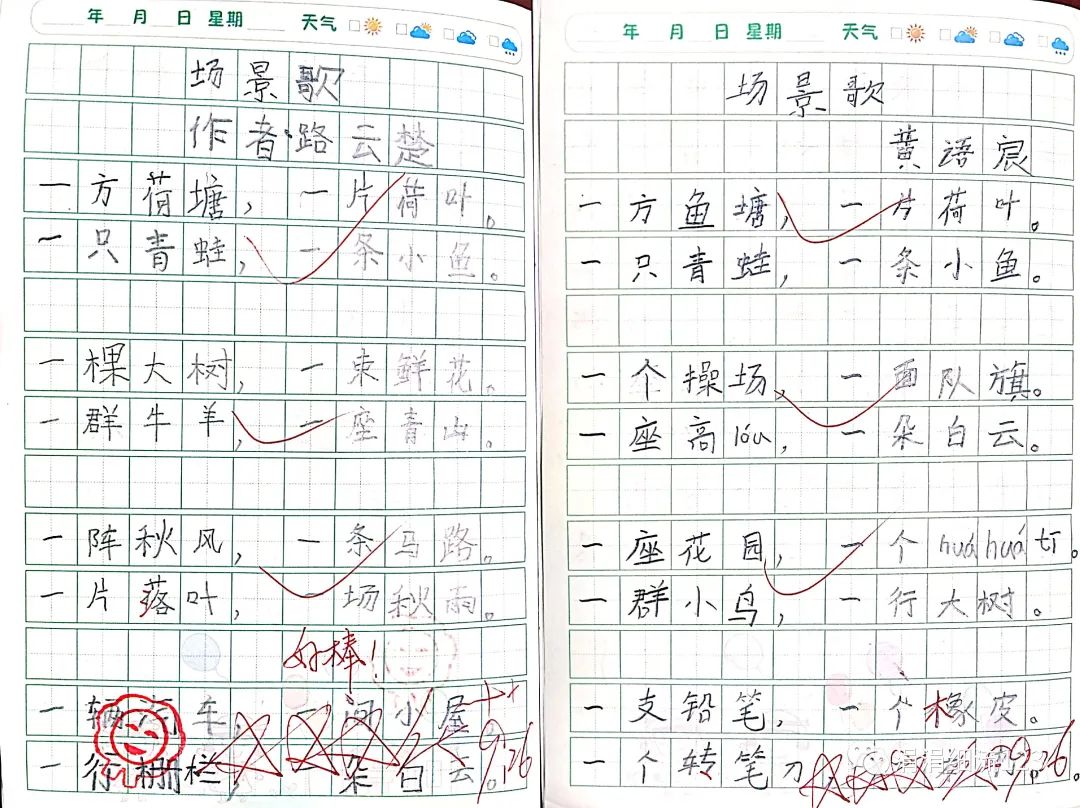 年 月 日 星期 天气
场景歌
作者:路云楚
一方荷塘,一片荷叶。
一只青蛙,一条小鱼。
一棵大树,一束鲜花。
一群牛羊,一座青山。
一阵秋风,一条马路。
一片落叶,一场秋雨。
好棒!
一辆汽车,一间小屋
一行栅栏,一朵白云。
9.26
年 月 日 星期 天气
场景歌
黄语宸
一方鱼塘,一片荷叶。
一只青蛙,一条小鱼。
一个操场,一面队旗。
一座高lóu,一朵白云。
一座花园,一个huáhuátī。
一群小鸟,一行大树。
一支铅笔,一个橡皮。
一个转笔刀
9.26